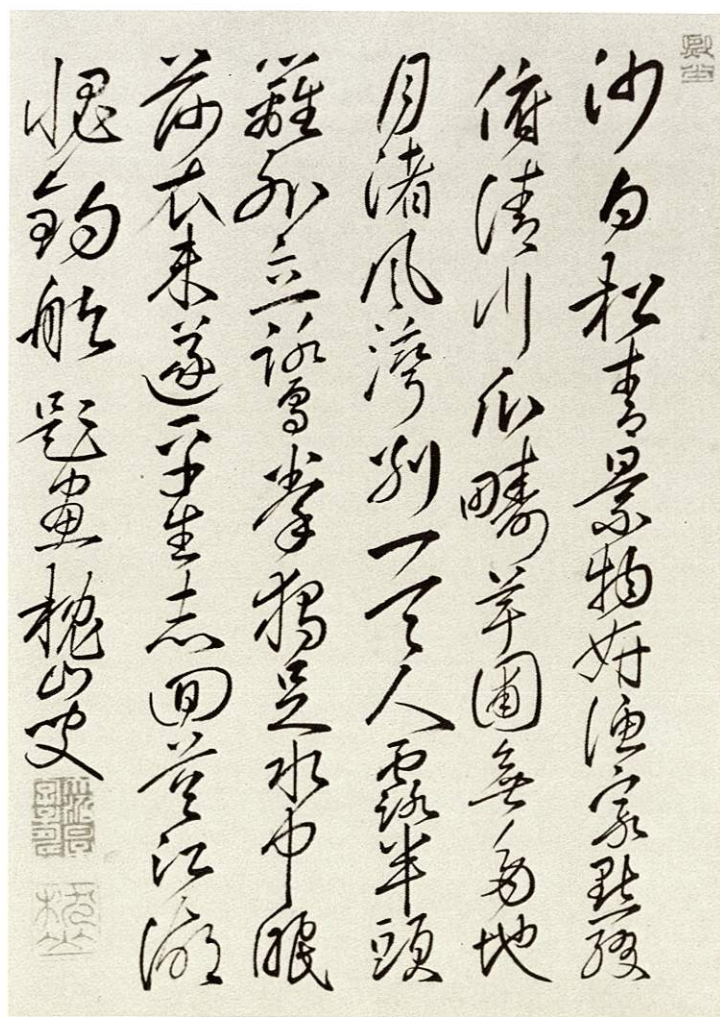 沙白松青景物妍漁家點綴
俯清川瓜疇芋圃無多地
月渚風灣別一天人露半頭
籬外立鷺拳獨足水中眠
荷衣未遂平生志回首江湖
愧釣船題畫槐山叟